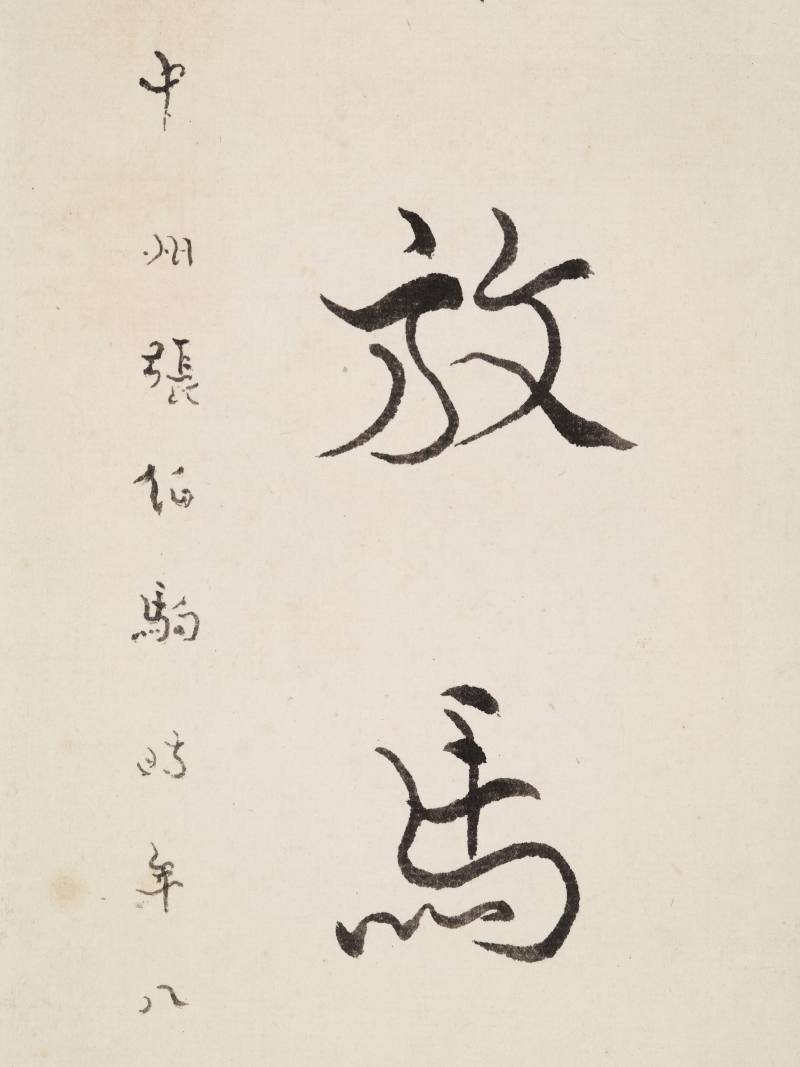 放馬
中州張伯駒時年八